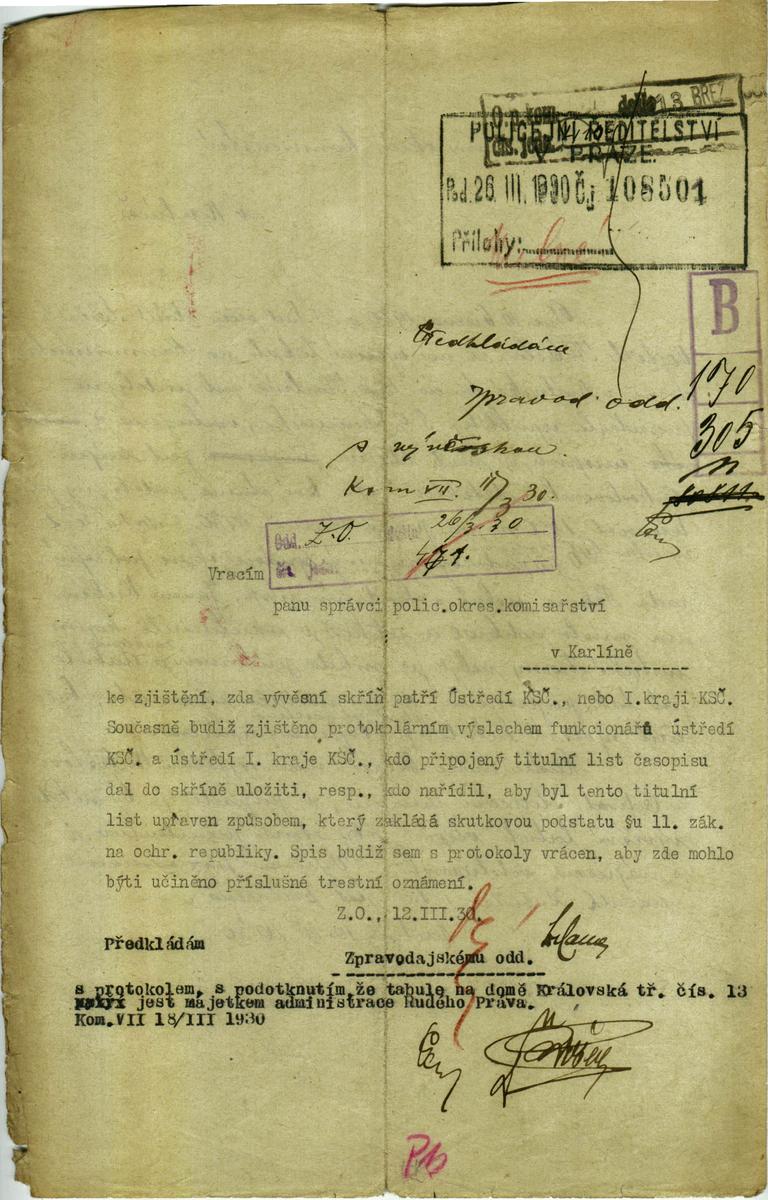 dne 13 BŘEZ
POLICEJNÍ ŘEDITELSTVÍ
V PRAZE.
Pod. 26. III. 1930 Čj. 108501
Přílohy:
B
Předkládám
zpravod. odd. 170
305
s vývěskou.
Kom VII. 30.
Z.O. 26/3.30
Vracím
panu správci polic.okres.komisařství
v Karlíně
ke zjištění, zda vývěsní skříň patří Ústředí KSČ., nebo I.kraji KSČ.
Současně budiž zjištěno protokolárním výslechem funkcionářů ústředí
KSČ. a ústředí I. kraje KSČ., kdo připojený titulní list časopisu
dal do skříně uložiti, resp., kdo nařídil, aby byl tento titulní
list upraven způsobem, který zakládá skutkovou podstatu §u 11. zák.
na ochr. republiky. Spis budiž sem s protokoly vrácen, aby zde mohlo
býti učiněno příslušné trestní oznámení.
Z.O., 12.III.30.
Předkládám
Zpravodajskému odd.
s protokolem, s podotknutím,že tabule na domě Královská tř. čís. 13
jest majetkem administrace Rudého Práva.
Kom.VII 18/III 1930